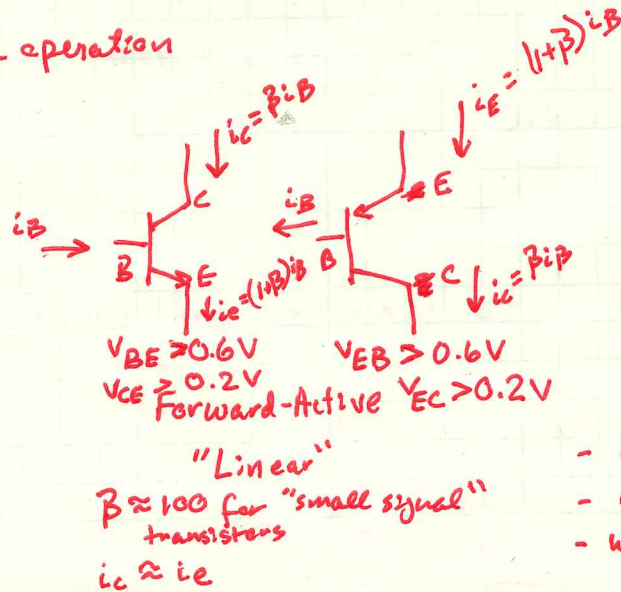 operation
iC = βiB
iE = (1+β)iB
C
E
iB
iB
B
E
B
C
ie = (1+β)iB
iC = βiB
VBE > 0.6V
VEB > 0.6V
VCE > 0.2V
VEC > 0.2V
Forward-Active
"Linear"
β ≈ 100 for "small signal"
transistors
ic ≈ ie
-
-
-